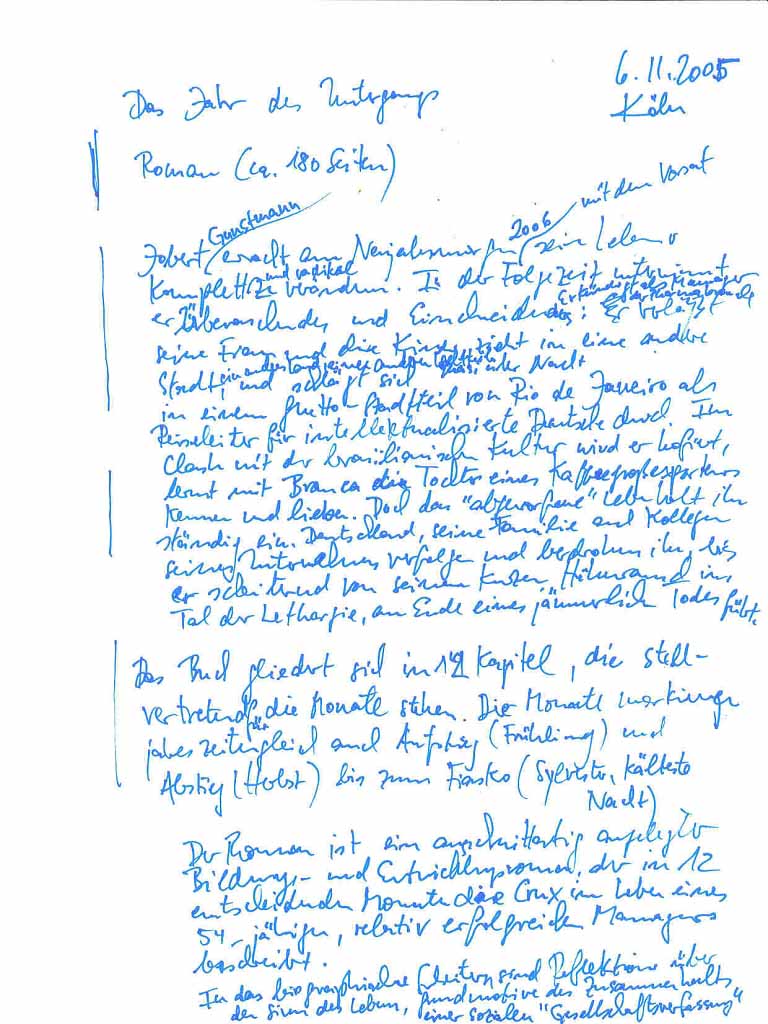 6.11.2005
Das Jahr des Untergangs
Köln
Roman (ca. 180 Seiten)
Gunstmann 2006 mit dem Vorsatz
Jobert erwacht am Neujahrsmorgen sein Leben
komplett und radikal zu verändern. In der Folgezeit unternimmt
er Überraschendes und Einschneidendes: Er kündigt als Manager
Er verläßt
seine Frau und die Kinder, zieht in eine andere
Stadt, und schlägt sich quasi über Nacht
in einem Ghetto-Stadtteil von Rio de Janeiro als
Reiseleiter für intellektualisierte Deutsche durch. Im
Clash mit der brasilianischen Kultur wird er
lernt mit Branca die Tochter eines Kaffeegroßexporteurs
kennen und lieben. Doch das "abgeworfene" Leben holt ihn
ständig ein. Deutschland, seine Familie und Kollegen
seines Unternehmens verfolgen und bedrohen ihn, bis
er scheiternd von seinem kurzen Höhenrand ins
Tal der Lethargie, am Ende eines jämmerlichen Todes
Das Buch gliedert sich in 12 Kapitel, die stell-
vertretend für die Monate stehen. Die Monate markieren
jahreszeitengleich auch Aufstieg (Frühling) und
Abstieg (Herbst) bis zum Fiasko (Sylvester, kälteste
Nacht)
Der Roman ist ein ausschnittartig angelegter
Bildungs- und Entwicklungsroman, der in 12
entscheidenden Monaten die Crux im Leben eines
54-jährigen, relativ erfolgreichen Managers
beschreibt.
In das biographische sind Reflektionen über
den Sinn des Lebens, Grundmotive des Zusammenhalts
einer sozialen "Gesellschaftsverfassung"